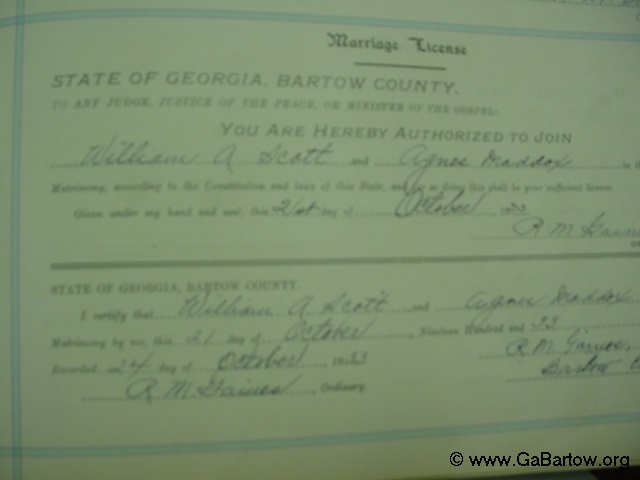 Marriage License
STATE OF GEORGIA, BARTOW COUNTY.
TO ANY JUDGE, JUSTICE OF THE PEACE, OR MINISTER OF THE GOSPEL:
YOU ARE HEREBY AUTHORIZED TO JOIN
William A Scott and Agnes Maddox in
Matrimony, according to the Constitution and laws of this State, and for so doing this shall be your sufficient license.
Given under my hand and seal, this 21st day of October 1933
R. M. Gaines
STATE OF GEORGIA, BARTOW COUNTY.
I certify that William A Scott and Agnes Maddox
Matrimony by me, this 21 day of October, Nineteen Hundred and 33
Recorded 24 day of October, 1933 R. M. Gaines,
Bartow
R M Gaines, Ordinary.
© www.GaBartow.org